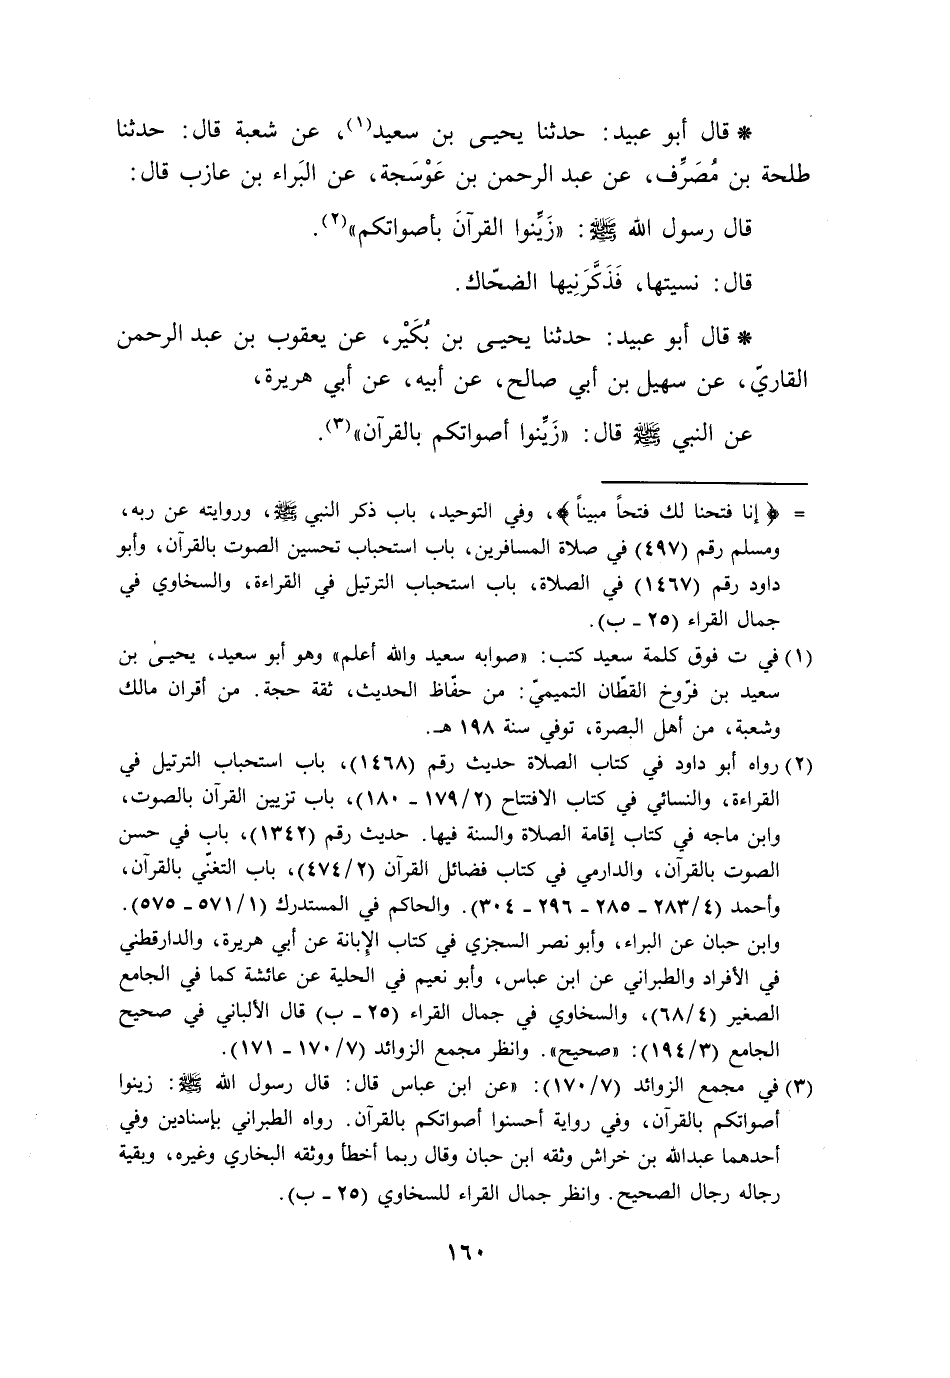 * قال أبو عبيد: حدثنا يحيـى بن سعيد(١)، عن شعبة قال: حدثنا
طلحة بن مُصَرِّف، عن عبد الرحمن بن عَوْسَجة، عن البَراء بن عازب قال:
قال رسول الله ﷺ: «زَيِّنوا القرآنَ بأصواتكم»(٢).
قال: نسيتها، فَذَكَّرَنِيها الضحّاك.
* قال أبو عبيد: حدثنا يحيـى بن بُكَيْر، عن يعقوب بن عبد الرحمن
القاريّ، عن سهيل بن أبي صالح، عن أبيه، عن أبي هريرة،
عن النبي ﷺ قال: «زَيِّنوا أصواتكم بالقرآن»(٣).
= ﴿إنا فتحنا لك فتحاً مبيناً﴾، وفي التوحيد، باب ذكر النبي ﷺ، وروايته عن ربه،
ومسلم رقم (٤٩٧) في صلاة المسافرين، باب استحباب تحسين الصوت بالقرآن، وأبو
داود رقم (١٤٦٧) في الصلاة، باب استحباب الترتيل في القراءة، والسخاوي في
جمال القراء (٢٥ ـ ب).
(١) في ت فوق كلمة سعيد كتب: «صوابه سعيد والله أعلم» وهو أبو سعيد، يحيىٰ بن
سعيد بن فرّوخ القطّان التميميّ: من حفّاظ الحديث، ثقة حجة. من أقران مالك
وشعبة، من أهل البصرة، توفي سنة ١٩٨ هـ.
(٢) رواه أبو داود في كتاب الصلاة حديث رقم (١٤٦٨)، باب استحباب الترتيل في
القراءة، والنسائي في كتاب الافتتاح (١٧٩/٢ ـ ١٨٠)، باب تزيين القرآن بالصوت،
وابن ماجه في كتاب إقامة الصلاة والسنة فيها. حديث رقم (١٣٤٢)، باب في حسن
الصوت بالقرآن، والدارمي في كتاب فضائل القرآن (٤٧٤/٢)، باب التغنّي بالقرآن،
وأحمد (٢٨٣/٤ ـ ٢٨٥ ـ ٢٩٦ ـ ٣٠٤). والحاكم في المستدرك (٥٧١/١ ـ ٥٧٥).
وابن حبان عن البراء، وأبو نصر السجزي في كتاب الإبانة عن أبي هريرة، والدارقطني
في الأفراد والطبراني عن ابن عباس، وأبو نعيم في الحلية عن عائشة كما في الجامع
الصغير (٦٨/٤)، والسخاوي في جمال القراء (٢٥ ـ ب) قال الألباني في صحيح
الجامع (١٩٤/٣): «صحيح». وانظر مجمع الزوائد (١٧٠/٧ ـ ١٧١).
(٣) في مجمع الزوائد (١٧٠/٧): «عن ابن عباس قال: قال رسول الله ﷺ: زينوا
أصواتكم بالقرآن، وفي رواية أحسنوا أصواتكم بالقرآن. رواه الطبراني بإسنادين وفي
أحدهما عبدالله بن خراش وثقه ابن حبان وقال ربما أخطأ ووثقه البخاري وغيره، وبقية
رجاله رجال الصحيح. وانظر جمال القراء للسخاوي (٢٥ ـ ب).
١٦٠